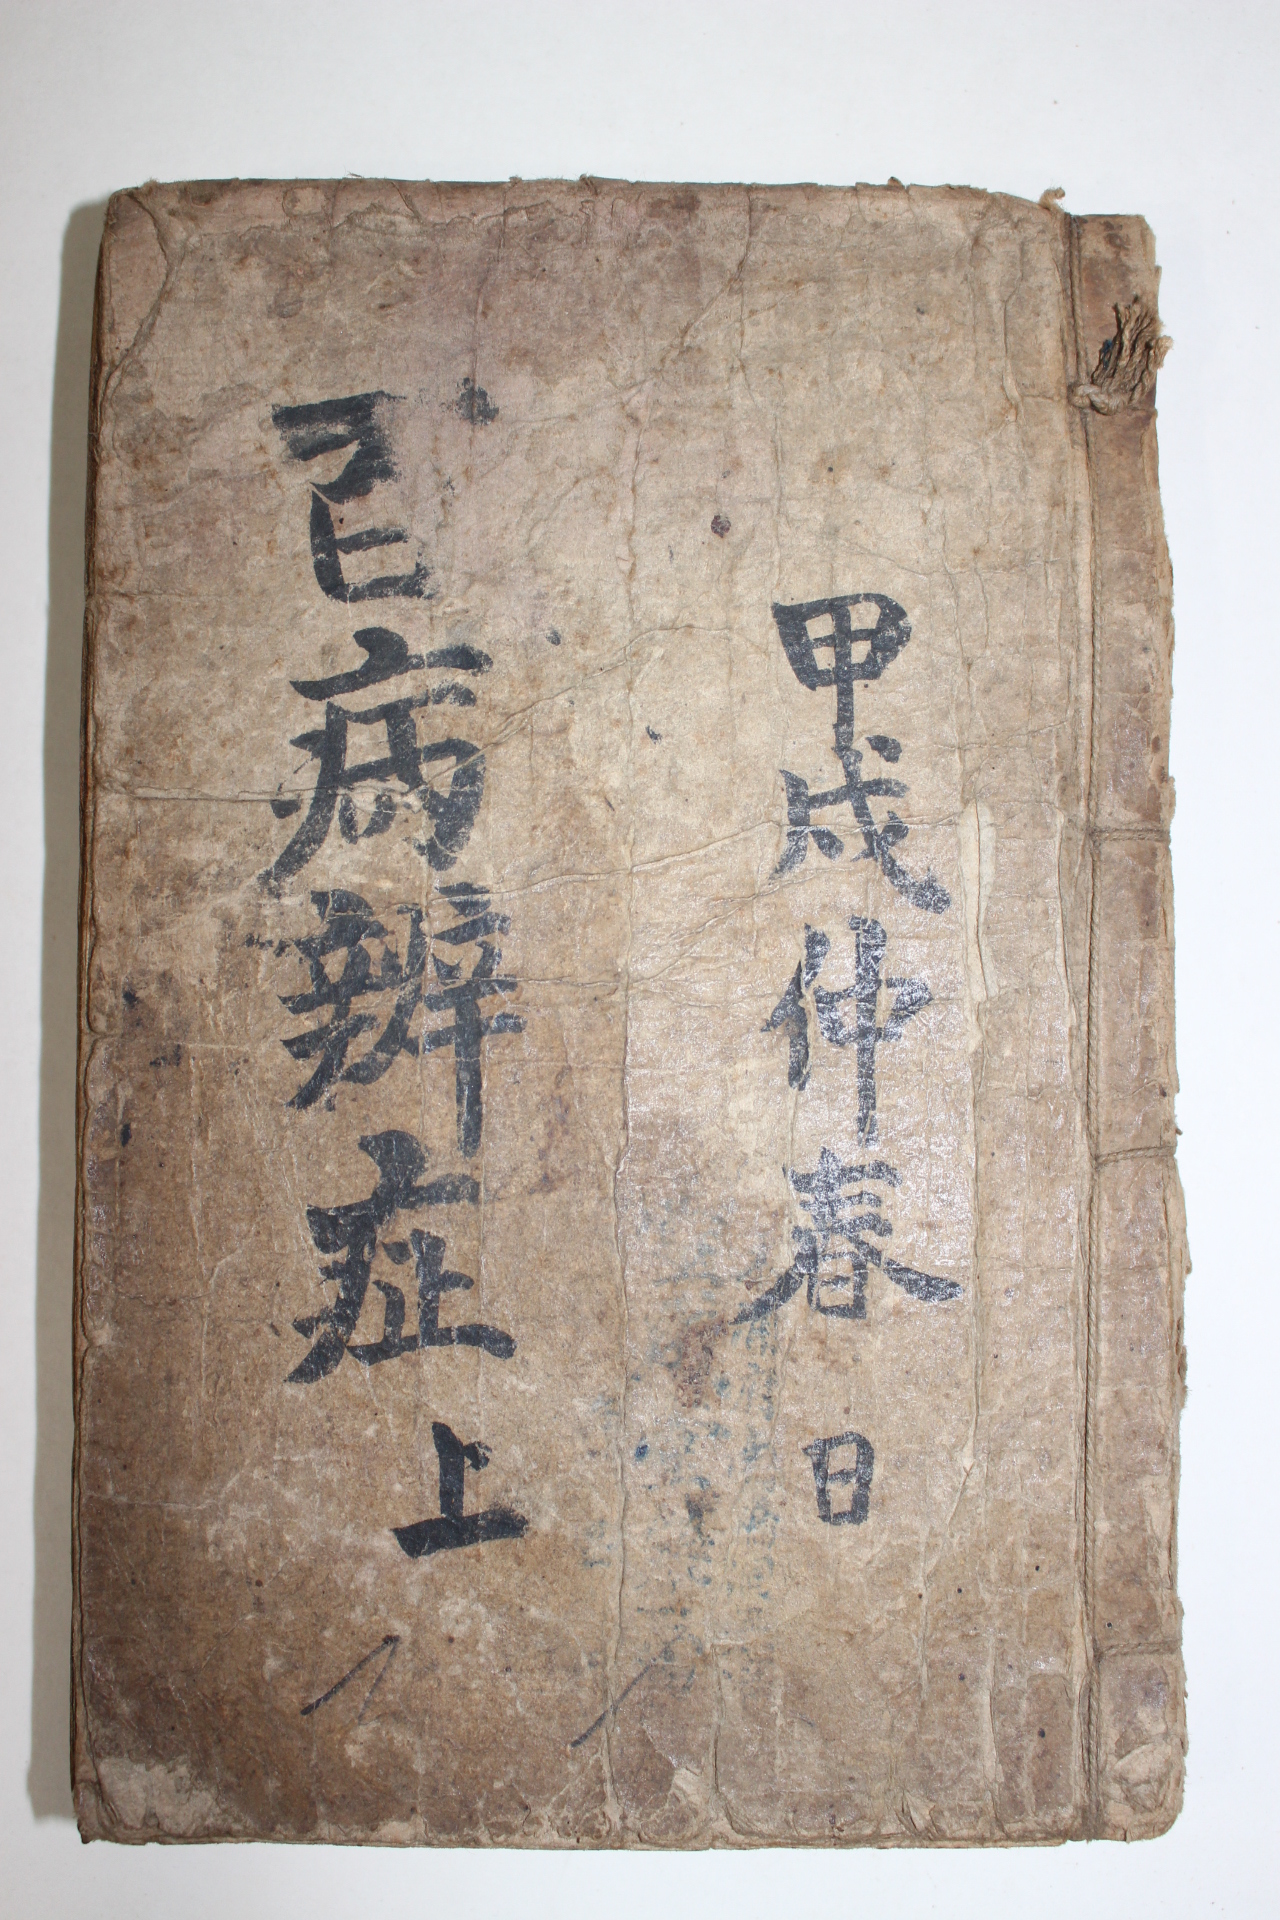 甲戌仲春日
百病辨症上